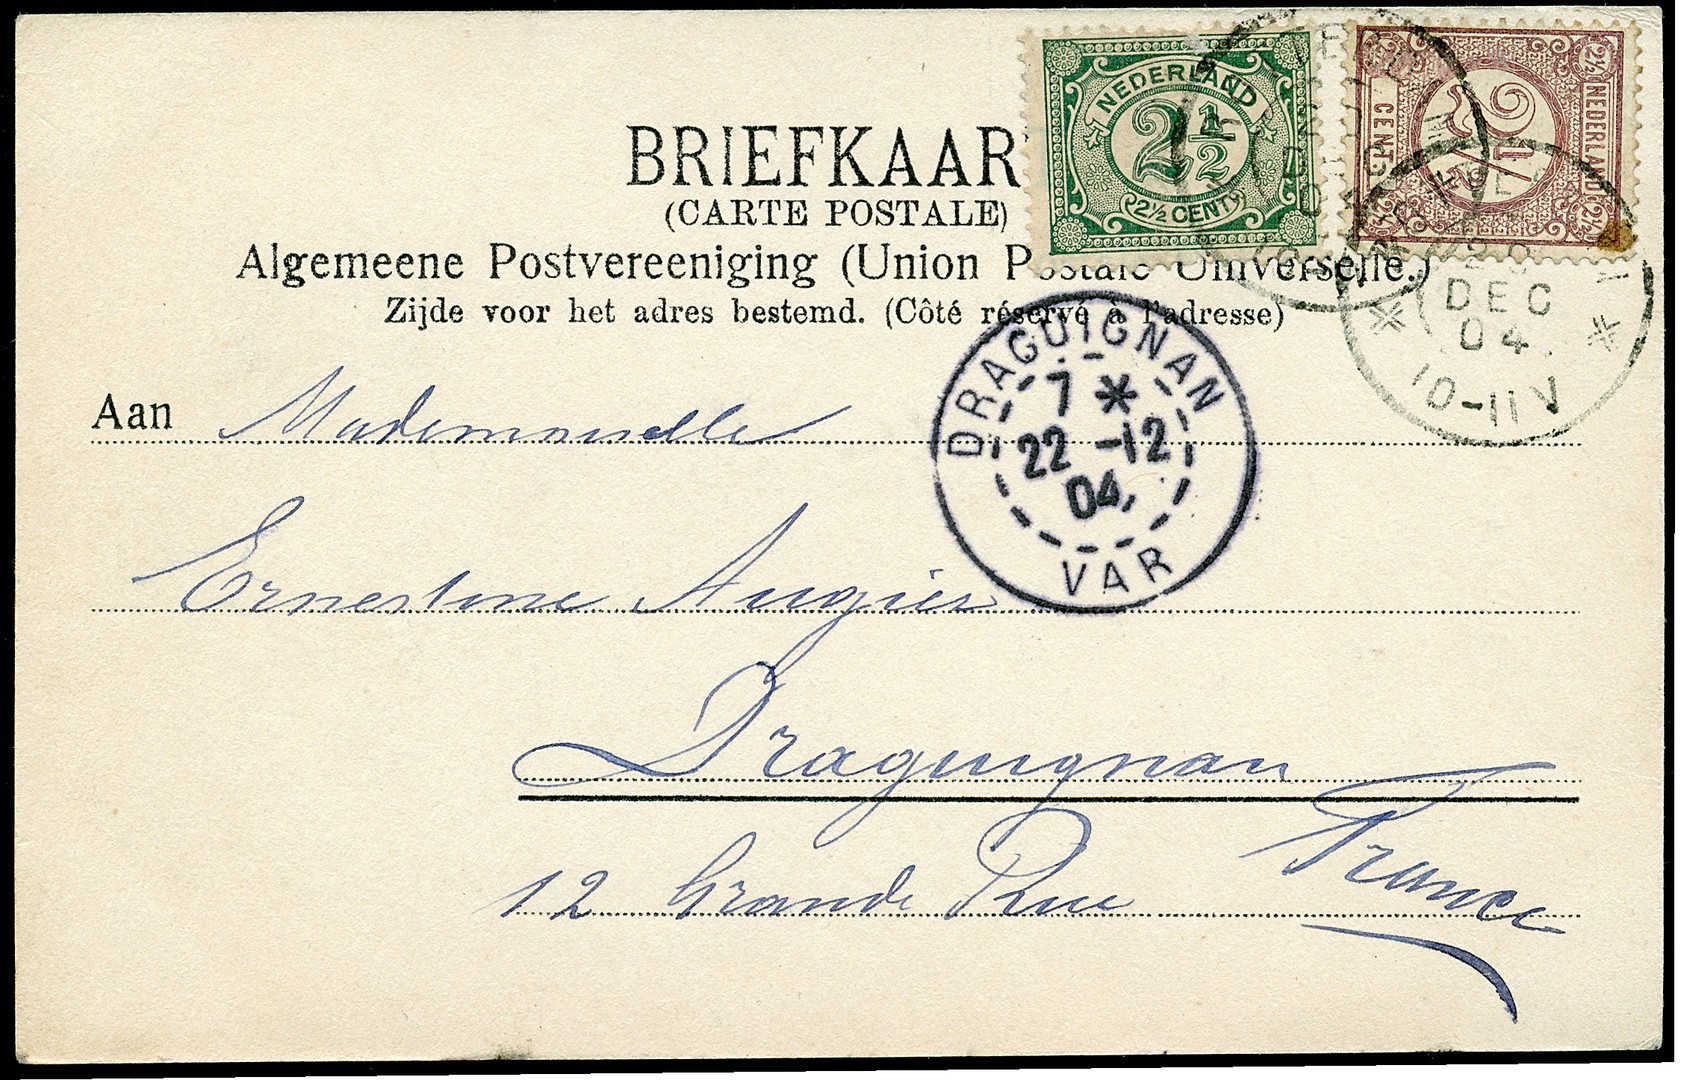 BRIEFKAAR
(CARTE POSTALE)
Algemeene Postvereeniging (Union Postale Universelle.)
Zijde voor het adres bestemd. (Côté réservé à l'adresse)
NEDERLAND
2½
2½ CENT
2½ NEDERLAND 2½
2½
CENT
DEC
04
10-11V
DRAGUIGNAN
7 *
22 -12
04
VAR
Aan Mademoiselle
Ernestine Augier
Draguignan
12 Grande Rue France